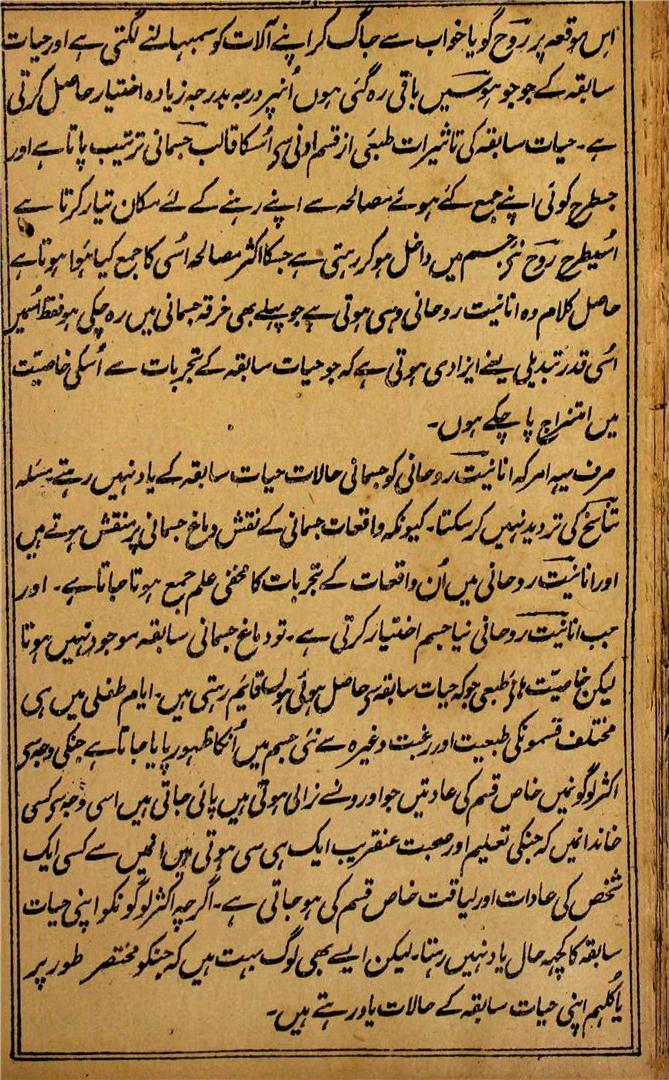 اس موقعہ پر روح گویا خواب سے جاگ کر اپنے آلات کو سمبہالنے لگتی ہے اور حیات
سابقہ کے جو جو ہوسیں باقی رہ گئی ہوں اُنپر درجہ بدرجہ زیادہ اختیار حاصل کرتی
ہے۔ حیات سابقہ کی تاثیرات طبعی از قسم ادنیٰ سی اُسکا قالب جسمانی ترتیب پاتا ہے اور
جسطرح کوئی اپنے جمع کئے ہوئے مصالحہ سے اپنے رہنے کے لئے مکان تیار کرتا ہے
اُسیطرح روح نئے جسم میں داخل ہو کر رہتی ہے جسکا اکثر مصالحہ اُسی کا جمع کیا ہوا ہوتا ہے
حاصل کلام وہ انانیت روحانی وہی ہوتی ہے جو پہلے بھی خرقہ جسمانی میں رہ چکی ہو فقط اُسمیں
اُسی قدر تبدیلی یعنے ایزادی ہوتی ہے کہ جو حیات سابقہ کے تجربات سے اُسکی خاصیت
میں امتزاج پا چکے ہوں۔
صرف یہہ امر کہ انانیت روحانی کو جسمانی حالات حیات سابقہ کے یاد نہیں رہتے مسئلہ
تناسخ کی تردید نہیں کر سکتا۔ کیونکہ واقعات جسمانی کے نقش دماغ جسمانی پر منقش ہوتے ہیں
اور انانیت روحانی میں اُن واقعات کے تجربات کا مخفی علم جمع ہوتا جاتا ہے۔ اور
جب انانیت روحانی نیا جسم اختیار کرتی ہے۔ تو دماغ جسمانی سابقہ موجود نہیں ہوتا
لیکن خاصیت ہائے طبعی جو کہ حیات سابقہ سی حاصل ہوئی ہوں قایم رہتی ہیں۔ ایام طفلی میں ہی
مختلف قسمونکی طبعیت اور رغبت وغیرہ سے نئی جسم میں اُنکا ظہور پایا جاتا ہے جنکی وجہ سی
اکثر لوگونمیں خاص قسم کی عادتیں جو اورونسے نرالی ہوتی ہیں پائی جاتی ہیں اسی وجہ سی کسی
خاندانمیں کہ جنکی تعلیم اور صحبت عنقریب ایک ہی سی ہوتی ہیں اُنھیں سے کسی ایک
شخص کی عادات اور لیاقت خاص قسم کی ہو جاتی ہے۔ اگرچہ اکثر لوگونکو اپنی حیات
سابقہ کا کچہہ حال یاد نہیں رہتا۔ لیکن ایسے بھی لوگ بہت ہیں کہ جنکو مختصر طور پر
یا کلہم اپنی حیات سابقہ کے حالات یاد رہتے ہیں۔